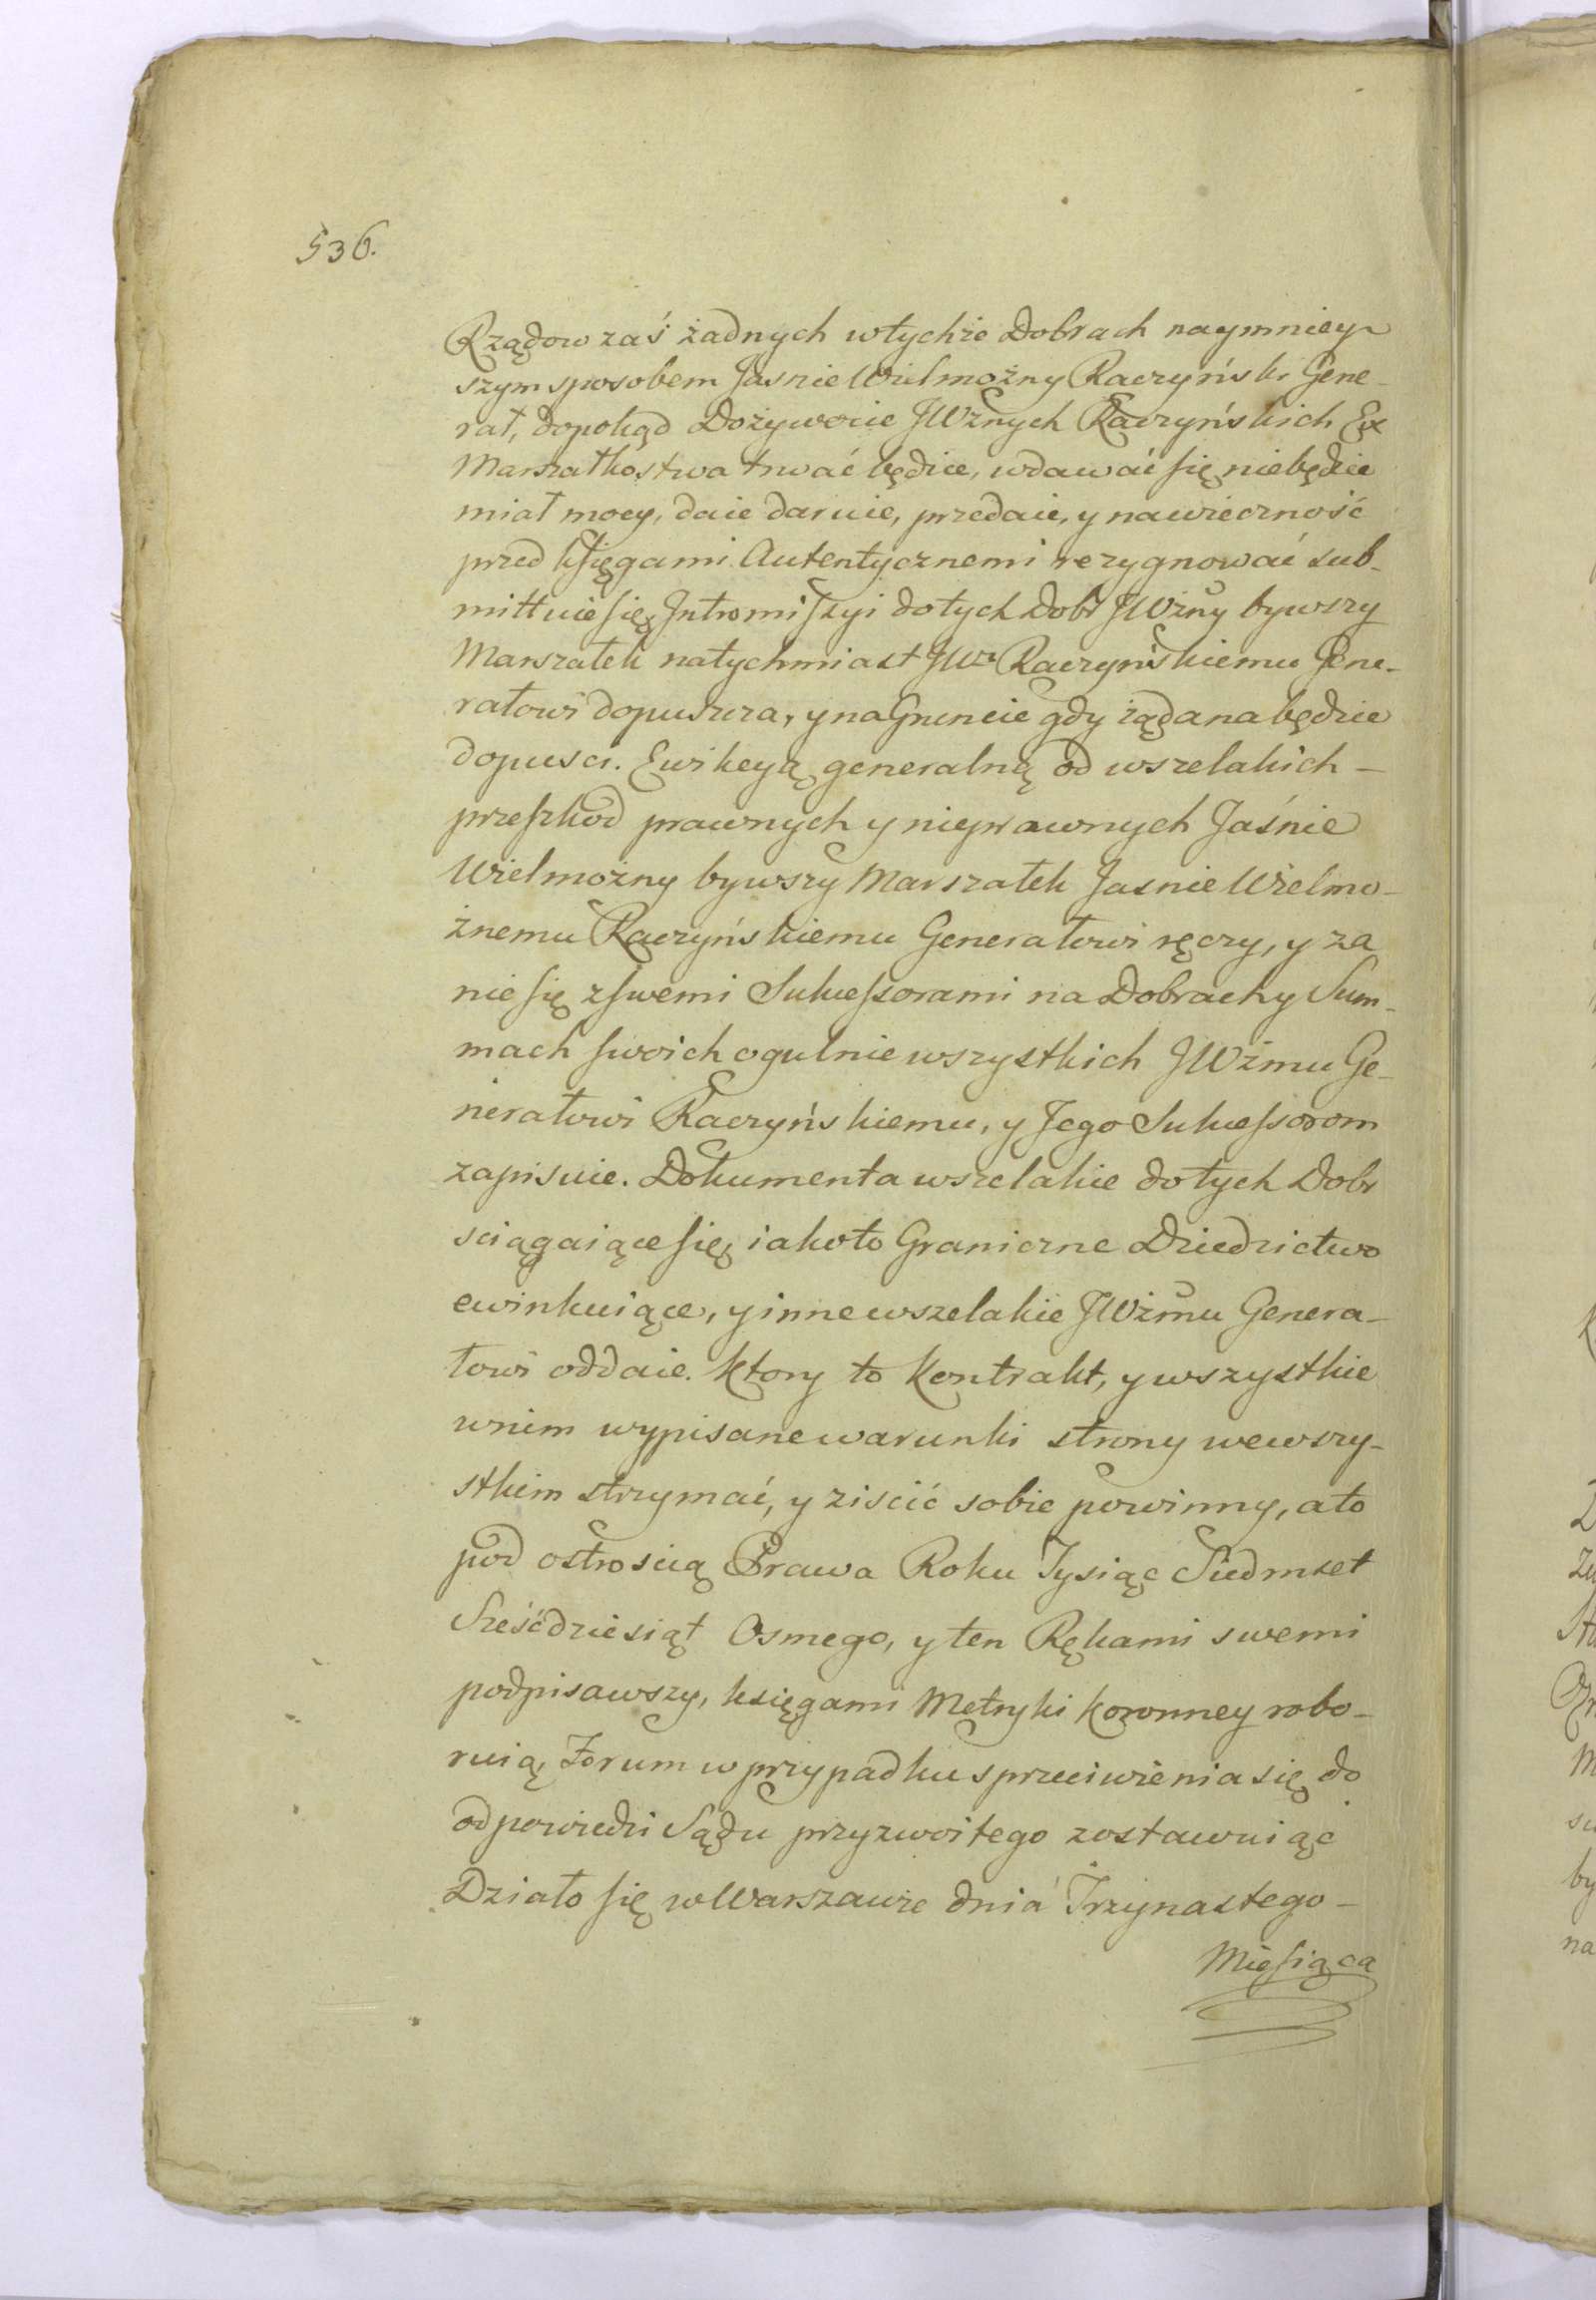 536.
Rządow zaś żadnych wtychże Dobrach naymniey-
szym sposobem Jasnie Wielmożny Raczyński Gene-
rał, dopokąd Dożywocie JWżnych Raczyńskich Ex
Marszałkostwa trwać będzie, wdawać się niebędzie
miał mocy, daie daruie, przedaie, y nawieczność
przed księgami Autentycznemi rezygnować sub-
mittuie się, Intromissyi dotych Dobr JWżny bywszy
Marszałek natychmiast JWu Raczyńskiemu Gene-
rałowi dopuszcza, y na Gruncie gdy żądana będzie
dopusci. Ewikcyą generalną od wszelakich -
przeszkod prawnych y nieprawnych Jaśnie
Wielmożny bywszy Marszałek Jasnie Wielmo-
żnemu Raczyńskiemu Generałowi ręczy, y za
nie się zswemi Sukcessorami na Dobrach y Sum-
mach swoich ogulnie wszystkich JWżmu Ge-
nerałowi Raczyńskiemu, y Jego Sukcessorom
zapisuie. Dokumenta wszelakie dotych Dobr
sciągaiące się, iakoto Graniczne Dziedzictwo
ewinkuiące, y inne wszelakie JWżmu Genera-
łowi oddaie. Ktory to Kontrakt, y wszystkie
wnim wypisane warunki strony wewszy-
stkim strzymać, y ziscić sobie powinny, ato
pod ostroscią Prawa Roku Tysiąc Siedmset
Sześćdziesiąt Osmego, y ten Rękami swemi
podpisawszy, księgami Metryki Koronney robo-
ruią, Forum w przypadku sprzeciwienia się do
odpowiedzi Sądu przyzwoitego zostawuiąc
Działo się w Warszawie dnia Trzynastego -
Miesiąca